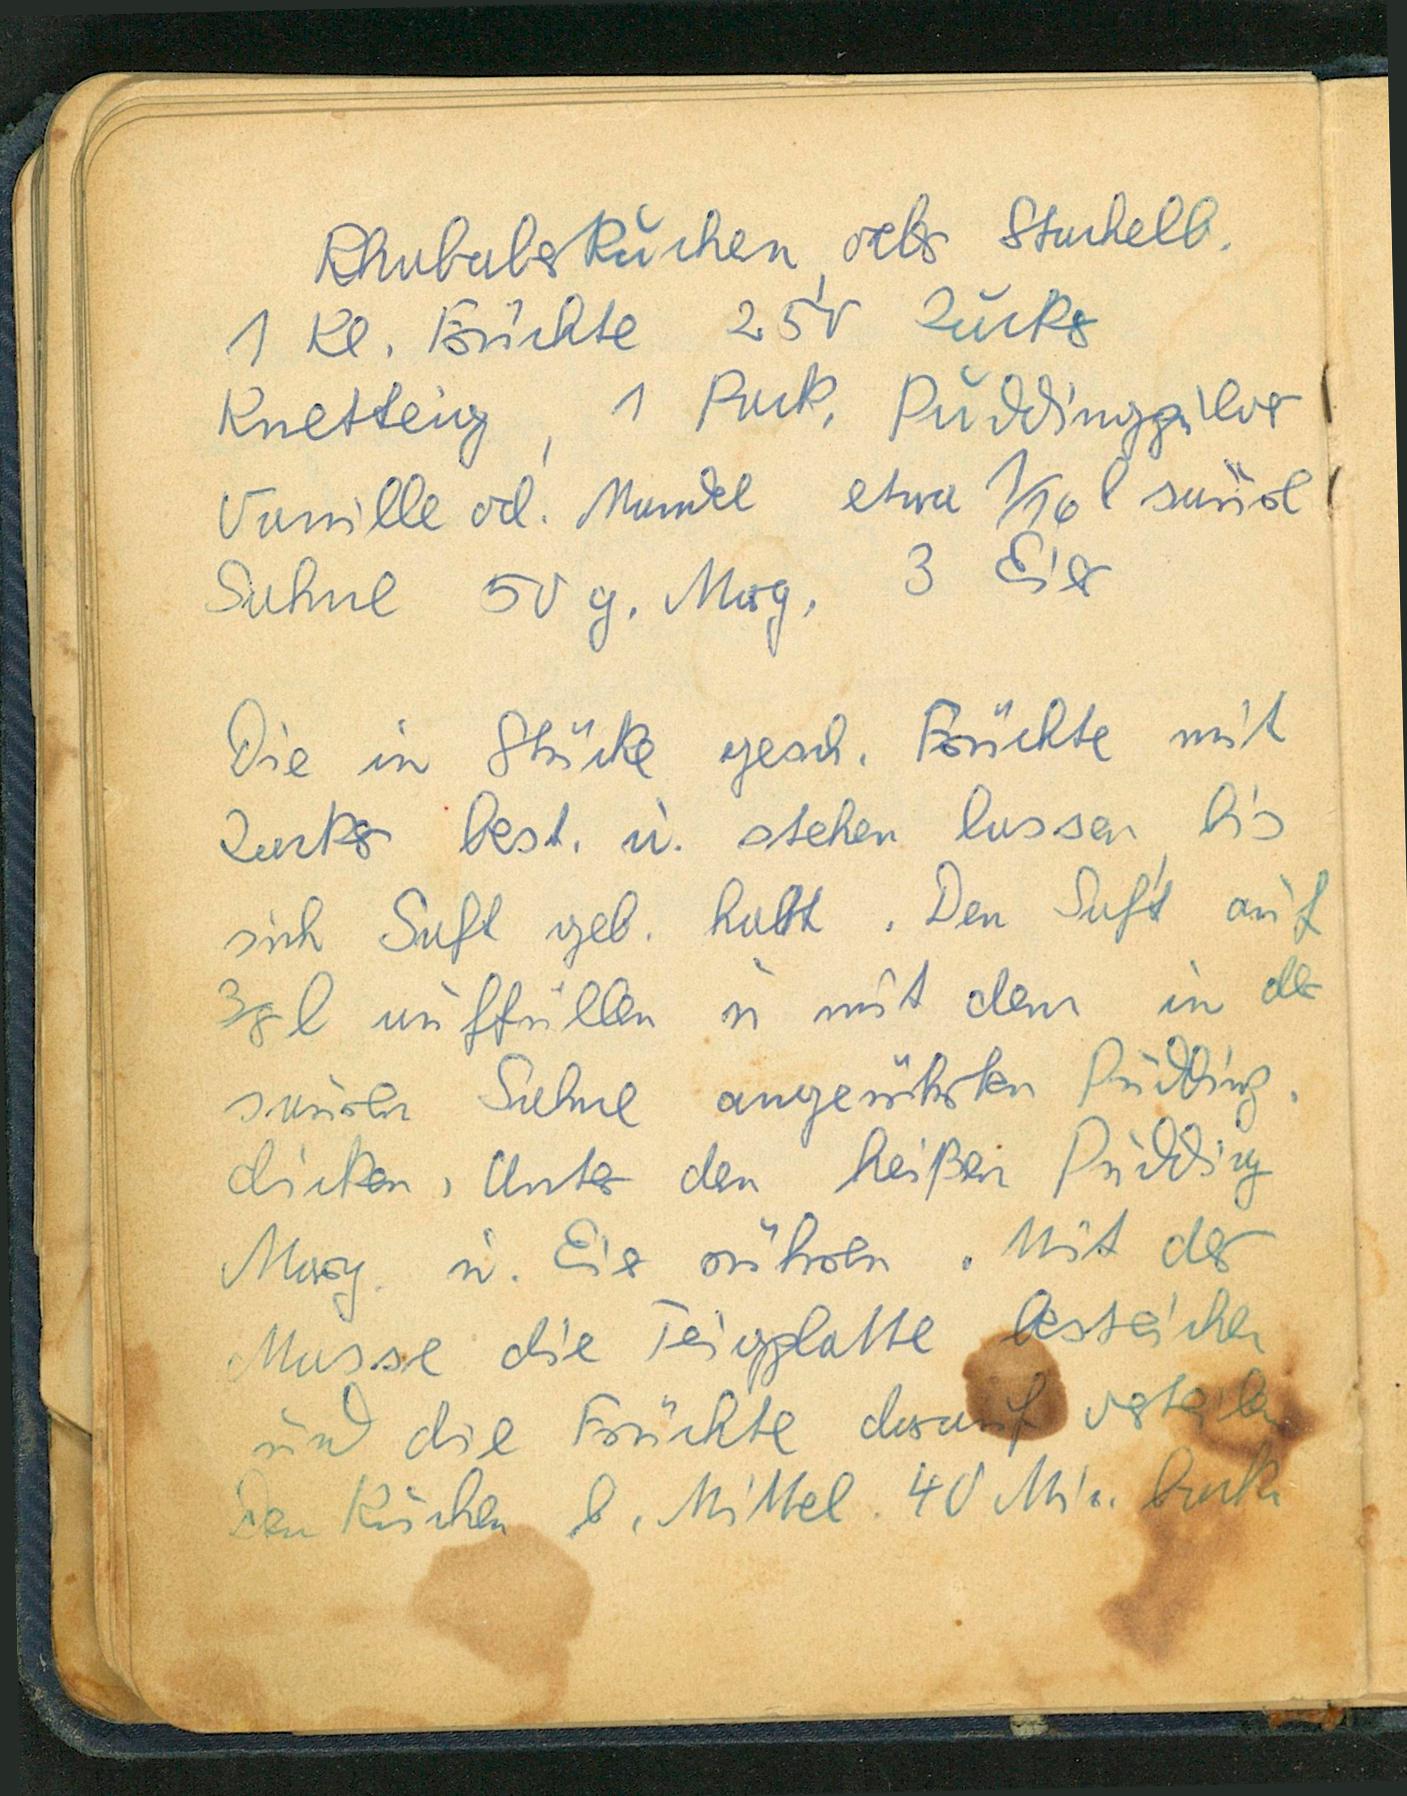 Rhababerkuchen, oder Stachelb.
1 Kl. Früchte 250 Zucker
Knetteig, 1 Pack. Puddingpulver
Vanille od. Mandel etwa 1/16 l saure
Sahne 50 g. Marg. 3 Eier
Die in Stücke gesch. Früchte mit
Zucker best. u. stehen lassen, bis
sich Saft geb. hatt. Den Saft auf
3/8 l auffüllen u mit dem in der
sauren Sahne angerührten Pudding.
dicken, Unter den heißen Pudding
Marg. u. Eier rühren. Mit der
Masse die Teigplatte besteichen
und die Früchte darauf verteilen
Den Kuchen b. Mittel. 40 Min. backen